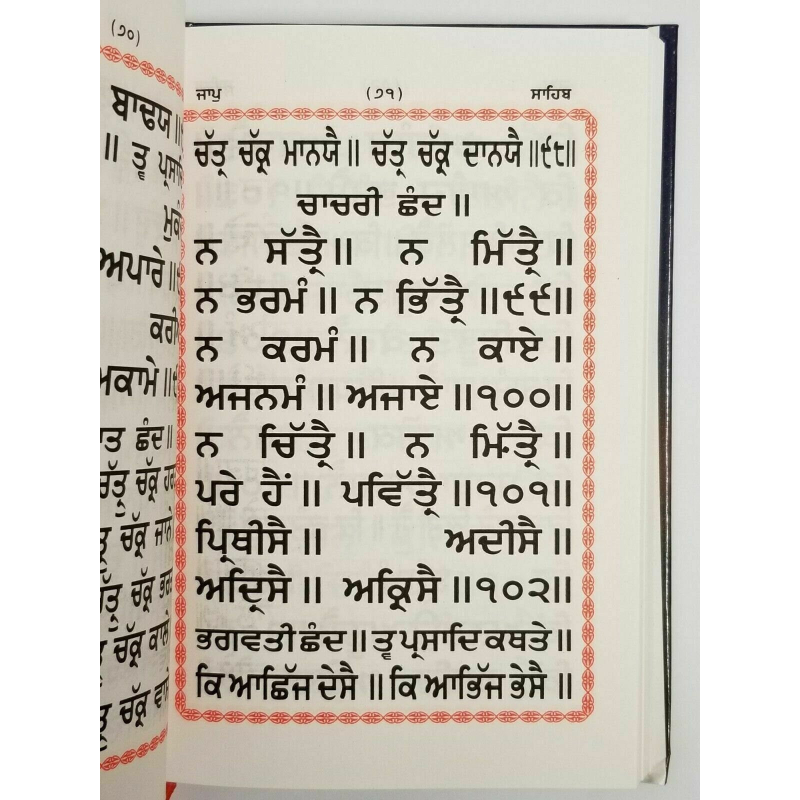 (੭੦)
ਬਾਢਯ ॥
॥ ਤ੍ਵ
ਅਪਾਰੇ ॥
ਛੰਦ ॥
ਚੱਕ੍ਰ
ਚੱਕ੍ਰ ਜਾਨੇ
ਚੱਕ੍ਰ
ਚੱਕ੍ਰ ਕਾਲੇ
ਚੱਕ੍ਰ
ਜਾਪੁ (੭੧) ਸਾਹਿਬ
ਚੱਤ੍ਰ ਚੱਕ੍ਰ ਮਾਨਯੈ ॥ ਚੱਤ੍ਰ ਚੱਕ੍ਰ ਦਾਨਯੈ ॥੯੮॥
ਚਾਚਰੀ ਛੰਦ ॥
ਨ ਸੱਤ੍ਰੈ ॥ ਨ ਮਿੱਤ੍ਰੈ ॥
ਨ ਭਰਮੰ ॥ ਨ ਭਿੱਤ੍ਰੈ ॥੯੯॥
ਨ ਕਰਮੰ ॥ ਨ ਕਾਏ ॥
ਅਜਨਮੰ ॥ ਅਜਾਏ ॥੧੦੦॥
ਨ ਚਿੱਤ੍ਰੈ ॥ ਨ ਮਿੱਤ੍ਰੈ ॥
ਪਰੇ ਹੈਂ ॥ ਪਵਿੱਤ੍ਰੈ ॥੧੦੧॥
ਪ੍ਰਿਥੀਸੈ ॥ ਅਦੀਸੈ ॥
ਅਦ੍ਰਿਸੈ ॥ ਅਕ੍ਰਿਸੈ ॥੧੦੨॥
ਭਗਵਤੀ ਛੰਦ ॥ ਤ੍ਵ ਪ੍ਰਸਾਦਿ ਕਥਤੇ ॥
ਕਿ ਆਛਿੱਜ ਦੇਸੈ ॥ ਕਿ ਆਭਿੱਜ ਭੇਸੈ ॥